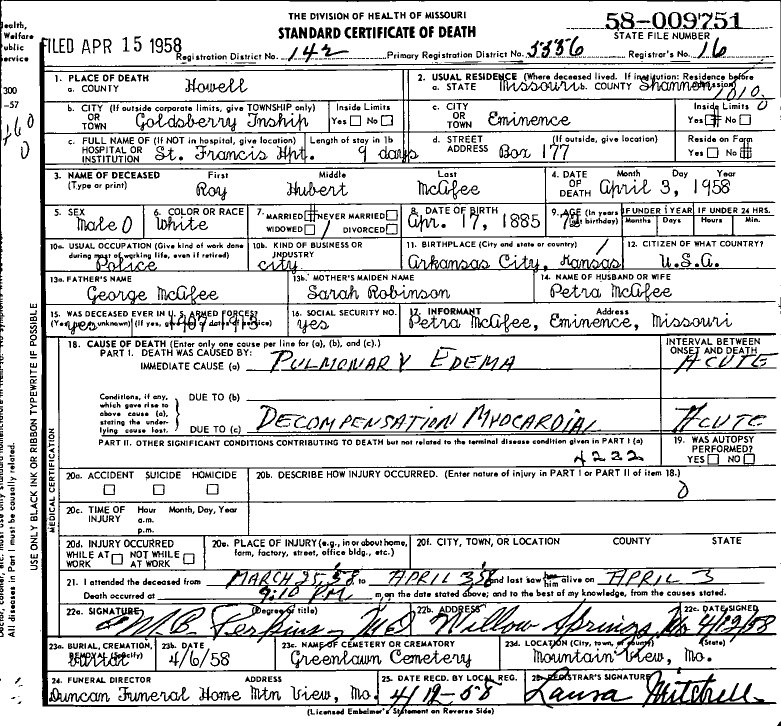 THE DIVISION OF HEALTH OF MISSOURI
STANDARD CERTIFICATE OF DEATH
58-009751
STATE FILE NUMBER
FILED APR 15 1958
Registration District No. 142 Primary Registration District No. 5336 Registrar's No. 16
1. PLACE OF DEATH
a. COUNTY Howell
2. USUAL RESIDENCE (Where deceased lived. If institution: Residence before admission)
a. STATE Missouri b. COUNTY Shannon
b. CITY (If outside corporate limits, give TOWNSHIP only) OR TOWN Goldsberry Tnship
Inside Limits Yes No
c. CITY OR TOWN Eminence
Inside Limits Yes No
c. FULL NAME OF (If NOT in hospital, give location) HOSPITAL OR INSTITUTION St. Francis Hpt.
Length of stay in 1b 9 days
d. STREET ADDRESS (If outside, give location) Box 177
Reside on Farm Yes No
3. NAME OF DECEASED (Type or print)
First Middle Last
Roy Hubert McAfee
4. DATE OF DEATH Month Day Year
April 3, 1958
5. SEX Male 0
6. COLOR OR RACE White
7. MARRIED NEVER MARRIED WIDOWED DIVORCED
8. DATE OF BIRTH Apr. 17, 1885
9. AGE (In years last birthday)
IF UNDER 1 YEAR Months Days
IF UNDER 24 HRS. Hours Min.
10a. USUAL OCCUPATION (Give kind of work done during most of working life, even if retired) Police
10b. KIND OF BUSINESS OR INDUSTRY city
11. BIRTHPLACE (City and state or country) Arkansas City, Kansas
12. CITIZEN OF WHAT COUNTRY? U.S.A.
13a. FATHER'S NAME George McAfee
13b. MOTHER'S MAIDEN NAME Sarah Robinson
14. NAME OF HUSBAND OR WIFE Petra McAfee
15. WAS DECEASED EVER IN U. S. ARMED FORCES? (Yes, no, or unknown) (If yes, give war or dates of service) yes
16. SOCIAL SECURITY NO. yes
17. INFORMANT Address
Petra McAfee, Eminence, Missouri
18. CAUSE OF DEATH (Enter only one cause per line for (a), (b), and (c).)
PART I. DEATH WAS CAUSED BY:
IMMEDIATE CAUSE (a) PULMONARY EDEMA
INTERVAL BETWEEN ONSET AND DEATH
ACUTE
Conditions, if any, which gave rise to above cause (a), stating the underlying cause last.
DUE TO (b)
DUE TO (c) DECOMPENSATION MYOCARDIAL ACUTE
PART II. OTHER SIGNIFICANT CONDITIONS CONTRIBUTING TO DEATH but not related to the terminal disease condition given in PART I (a)
4232
19. WAS AUTOPSY PERFORMED? YES NO
20a. ACCIDENT SUICIDE HOMICIDE
20b. DESCRIBE HOW INJURY OCCURRED. (Enter nature of injury in PART I or PART II of item 18.)
0
20c. TIME OF INJURY Hour a.m. p.m. Month, Day, Year
20d. INJURY OCCURRED WHILE AT WORK NOT WHILE AT WORK
20e. PLACE OF INJURY (e.g., in or about home, farm, factory, street, office bldg., etc.)
20f. CITY, TOWN, OR LOCATION COUNTY STATE
21. I attended the deceased from MARCH 25, 58 to APRIL 3, 58 and last saw him alive on APRIL 3
Death occurred at 9:10 P.M. m, on the date stated above; and to the best of my knowledge, from the causes stated.
22a. SIGNATURE (Degree or title) M.C. Perkins MD
22b. ADDRESS Willow Springs Mo
22c. DATE SIGNED 4/12/58
23a. BURIAL, CREMATION, REMOVAL (Specify) burial
23b. DATE 4/6/58
23c. NAME OF CEMETERY OR CREMATORY Greenlawn Cemetery
23d. LOCATION (City, town, or county) (State) Mountain View, Mo.
24. FUNERAL DIRECTOR ADDRESS
Duncan Funeral Home Mtn View, Mo.
25. DATE RECD. BY LOCAL REG. 4/12-58
26. REGISTRAR'S SIGNATURE Laura Mitchell
(Licensed Embalmer's Statement on Reverse Side)
MEDICAL CERTIFICATION
USE ONLY BLACK INK OR RIBBON TYPEWRITE IF POSSIBLE
All diseases in Part I must be causally related.
Health,
Welfare
Public
Service
300
-57